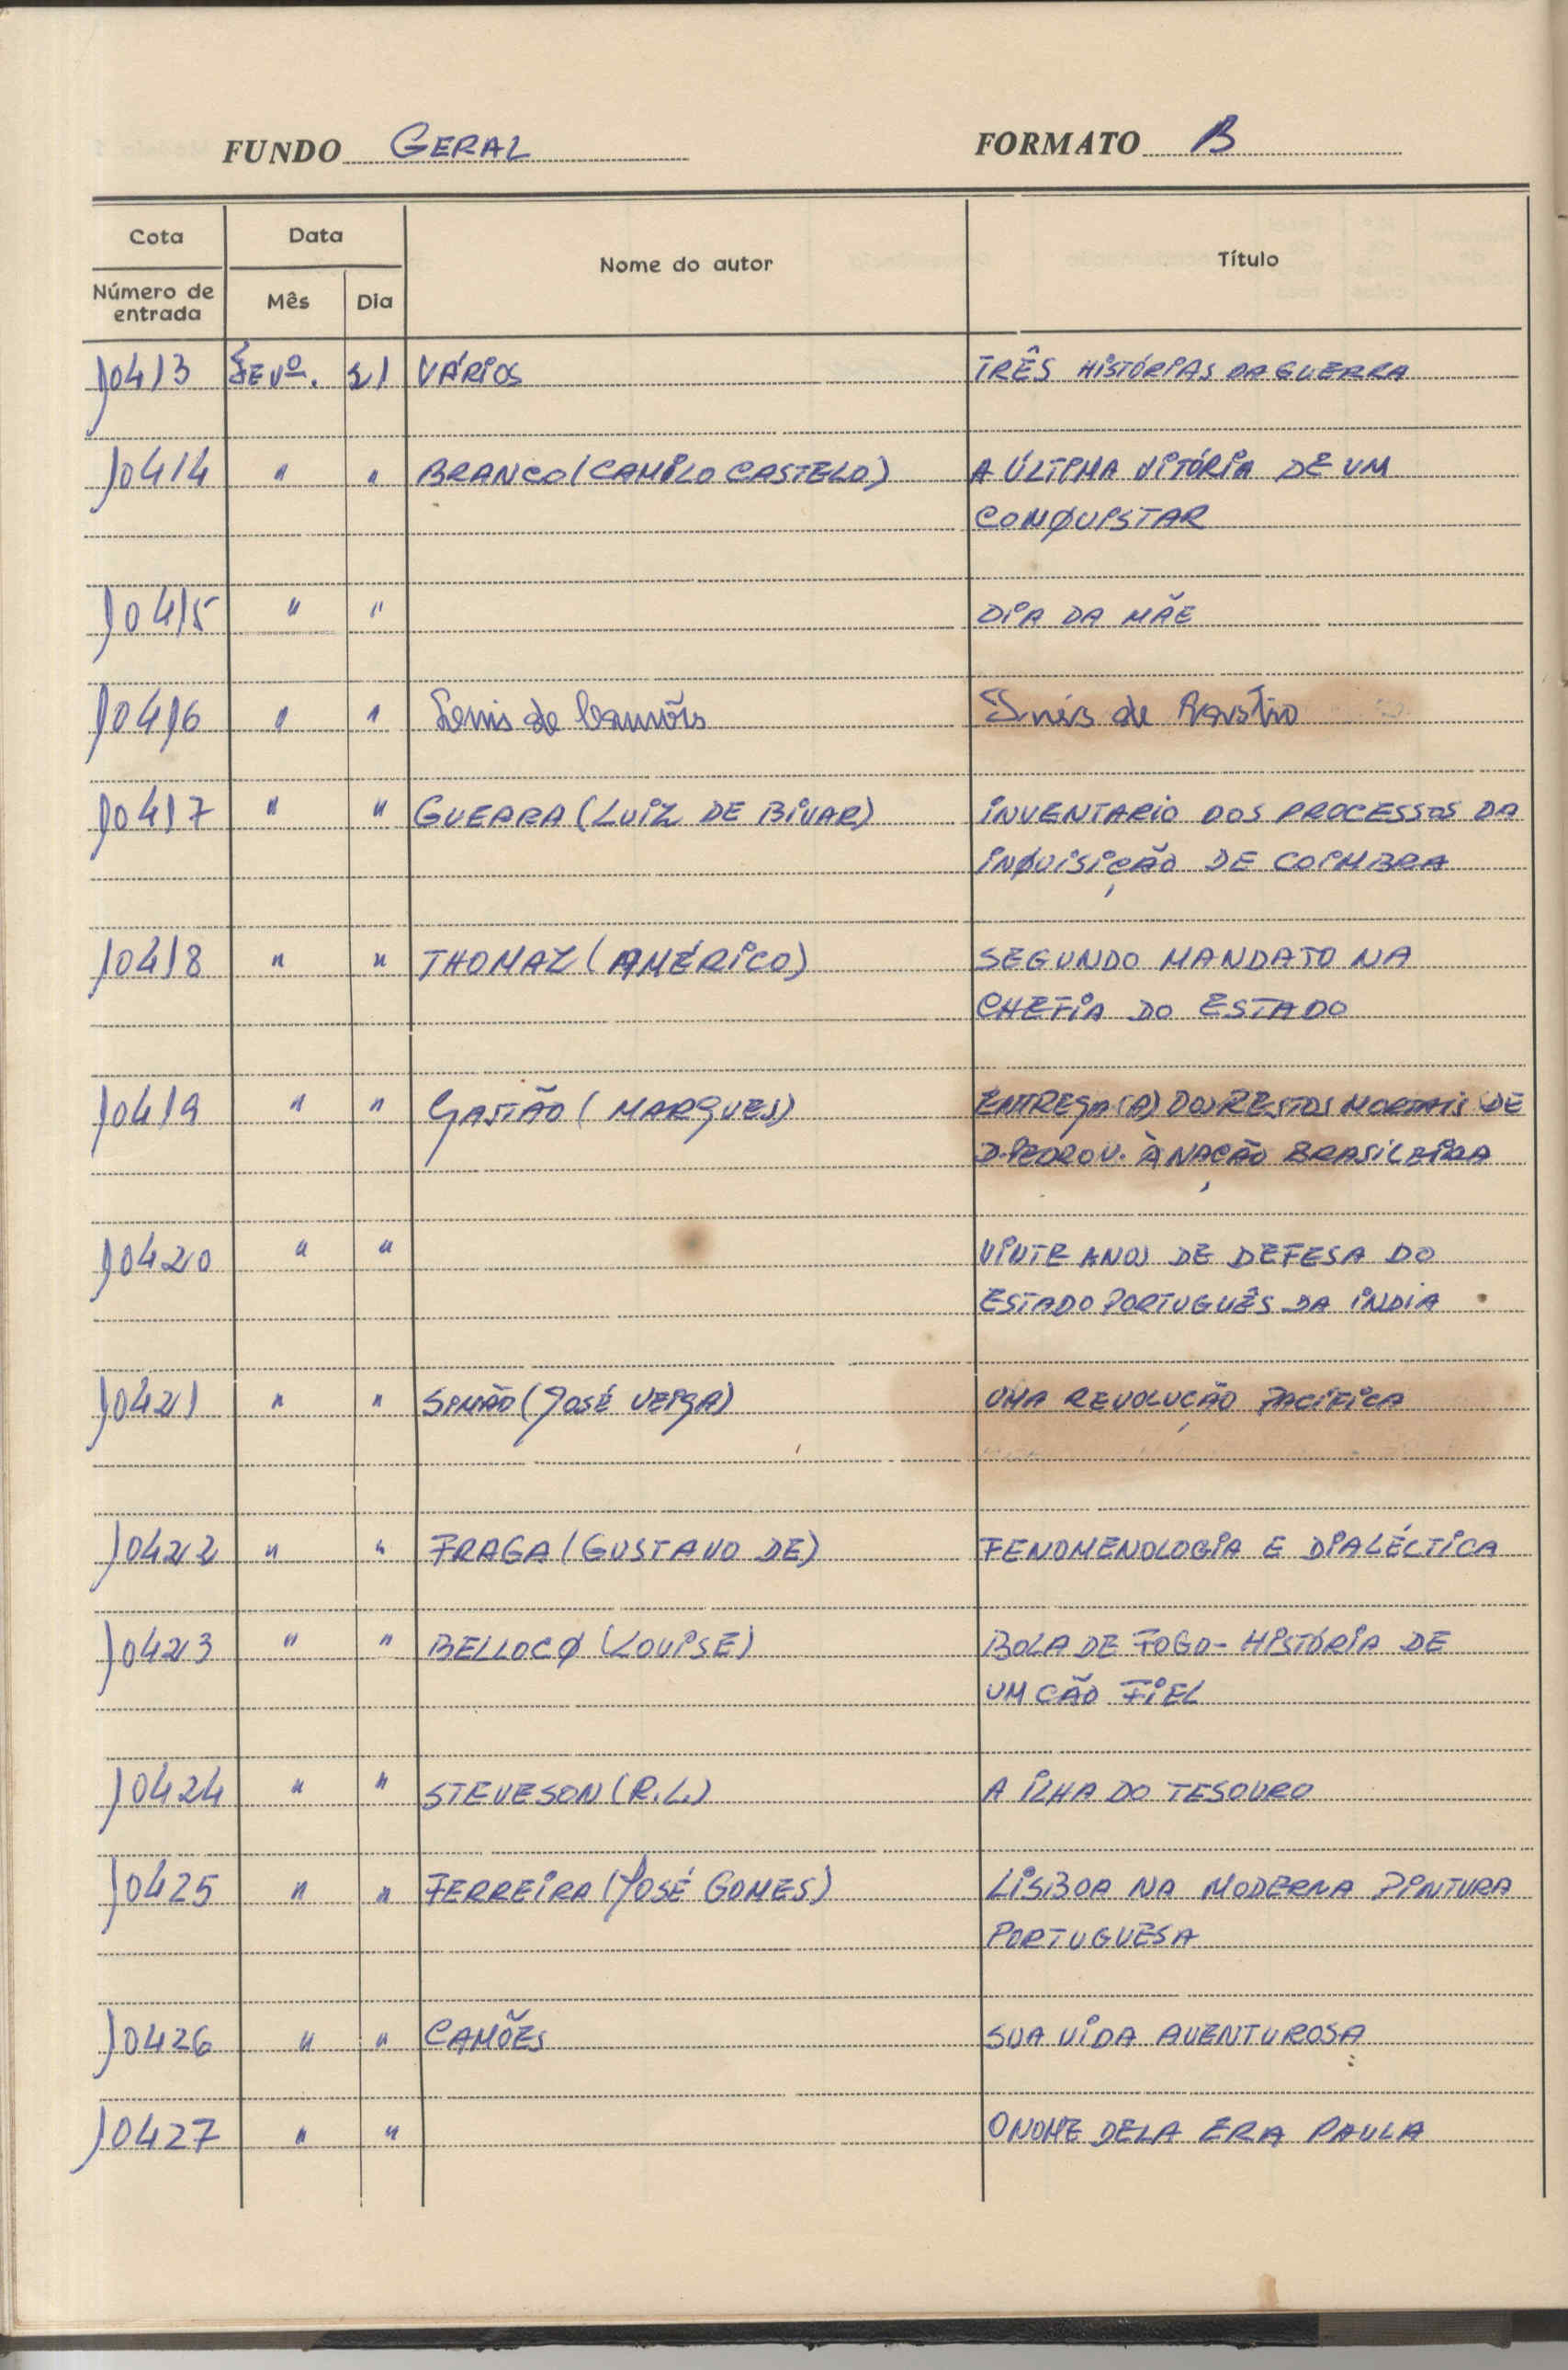 FUNDO GERAL FORMATO B
Cota Data Nome do autor Título
Número de entrada Mês Dia
10413 Fevº. 21 VÁRIOS TRÊS HISTÓRIAS DA GUERRA
10414 " " BRANCO (CAMILO CASTELO) A ÚLTIMA VITÓRIA DE UM
CONQUISTAR
10415 " " DIA DA MÃE
10416 " " Luis de Camões Inês de Castro
10417 " " GUERRA (LUIZ DE BIVAR) INVENTARIO DOS PROCESSOS DA
INQUISIÇÃO DE COIMBRA
10418 " " THOMAZ (AMÉRICO) SEGUNDO MANDATO NA
CHEFIA DO ESTADO
10419 " " GASTÃO (MARQUES) ENTREGA (A) DOS RESTOS MORTAIS DE
D. PEDRO V. À NAÇÃO BRASILEIRA
10420 " " VINTE ANOS DE DEFESA DO
ESTADO PORTUGUÊS DA INDIA
10421 " " SIMÃO (JOSÉ VEIGA) UMA REVOLUÇÃO PACIFICA
10422 " " FRAGA (GUSTAVO DE) FENOMENOLOGIA E DIALÉCTICA
10423 " " BELLOCQ (LOUISE) BOLA DE FOGO - HISTÓRIA DE
UM CÃO FIEL
10424 " " STEVESON (R.L.) A ILHA DO TESOURO
10425 " " FERREIRA (JOSÉ GOMES) LISBOA NA MODERNA PINTURA
PORTUGUESA
10426 " " CAMÕES SUA VIDA AVENTUROSA
10427 " " O NOME DELA ERA PAULA